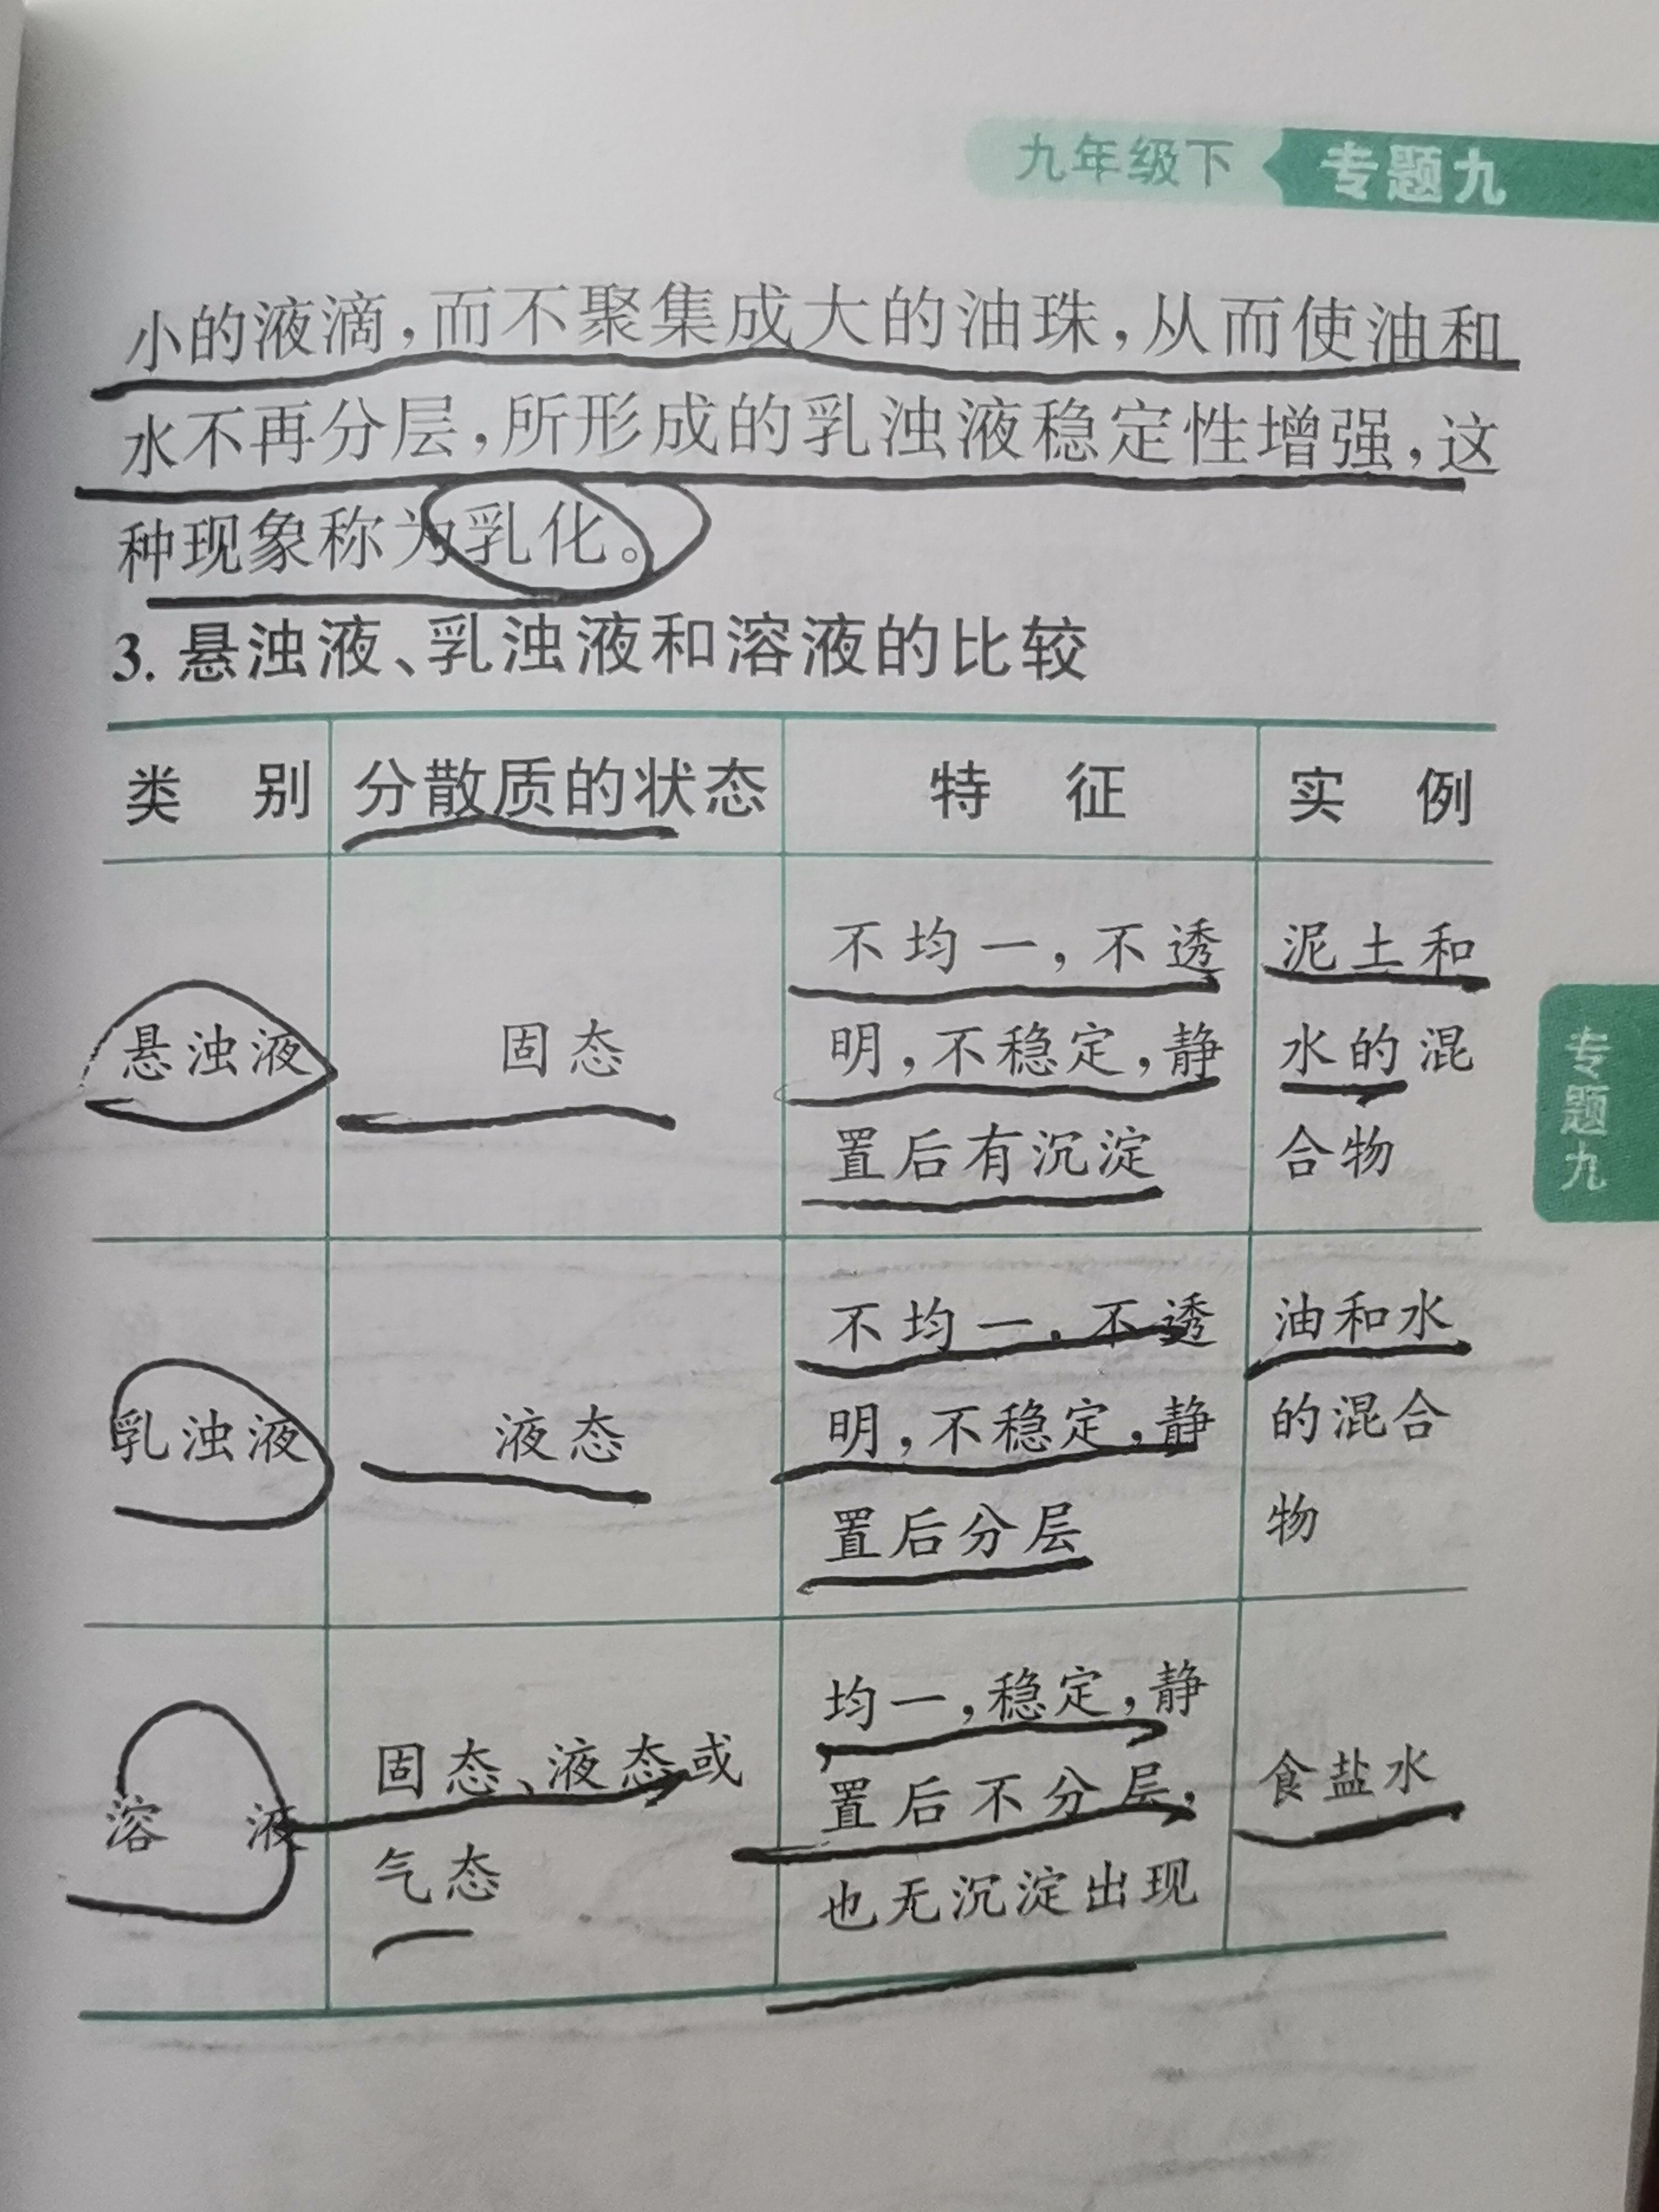 九年级下 专题九
小的液滴，而不聚集成大的油珠，从而使油和
水不再分层，所形成的乳浊液稳定性增强，这
种现象称为乳化。
3. 悬浊液、乳浊液和溶液的比较
类 别 分散质的状态 特 征 实 例
悬浊液 固态
不均一，不透
明，不稳定，静
置后有沉淀
泥土和
水的混
合物
乳浊液 液态
不均一，不透
明，不稳定，静
置后分层
油和水
的混合
物
溶 液
固态、液态或
气态
均一，稳定，静
置后不分层，
也无沉淀出现
食盐水
专题九